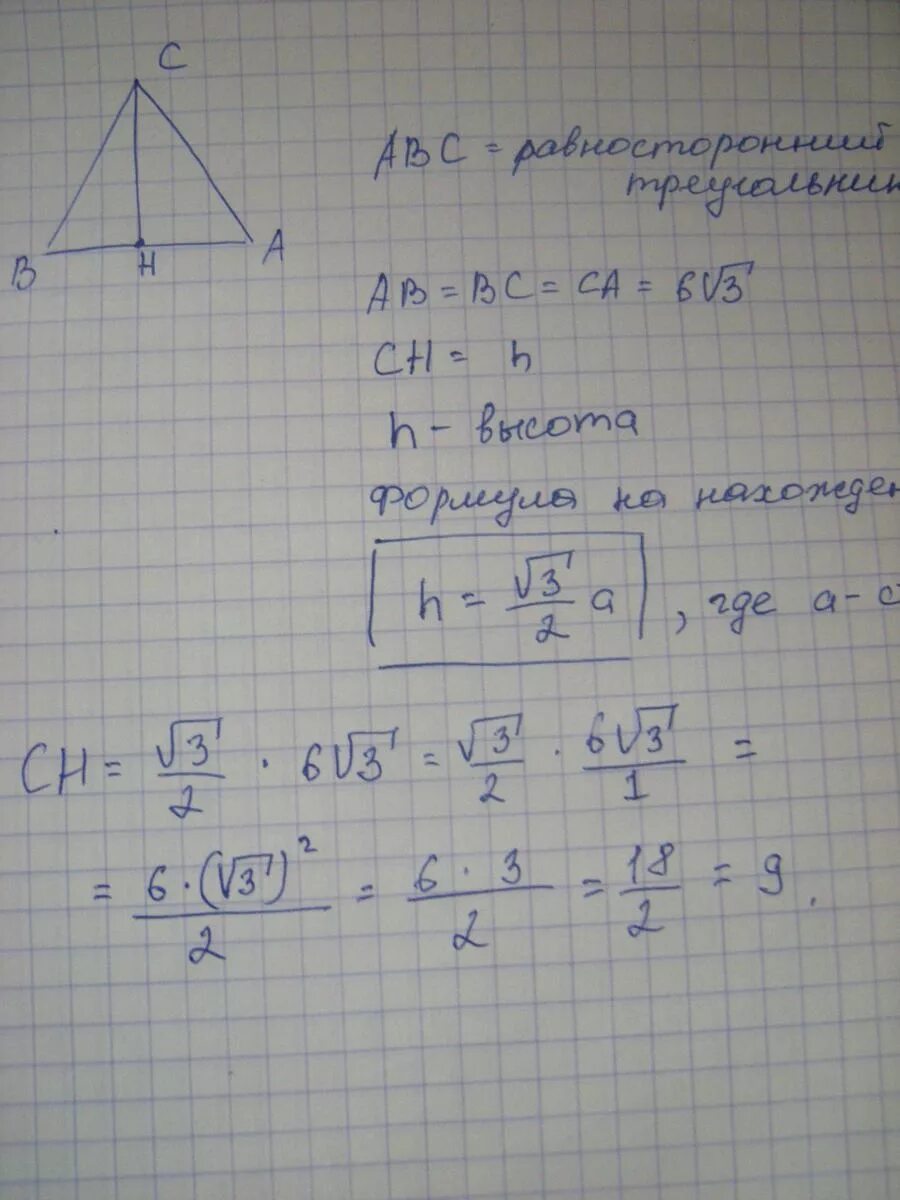 C
B
H
A
ABC = равносторонний
треугольник
AB = BC = CA = 6√3
CH = h
h - высота
формула на нахожден
h = √3/2 a , где a - с
CH = √3/2 · 6√3 = √3/2 · 6√3/1 =
= 6·(√3)²/2 = 6 · 3/2 = 18/2 = 9.